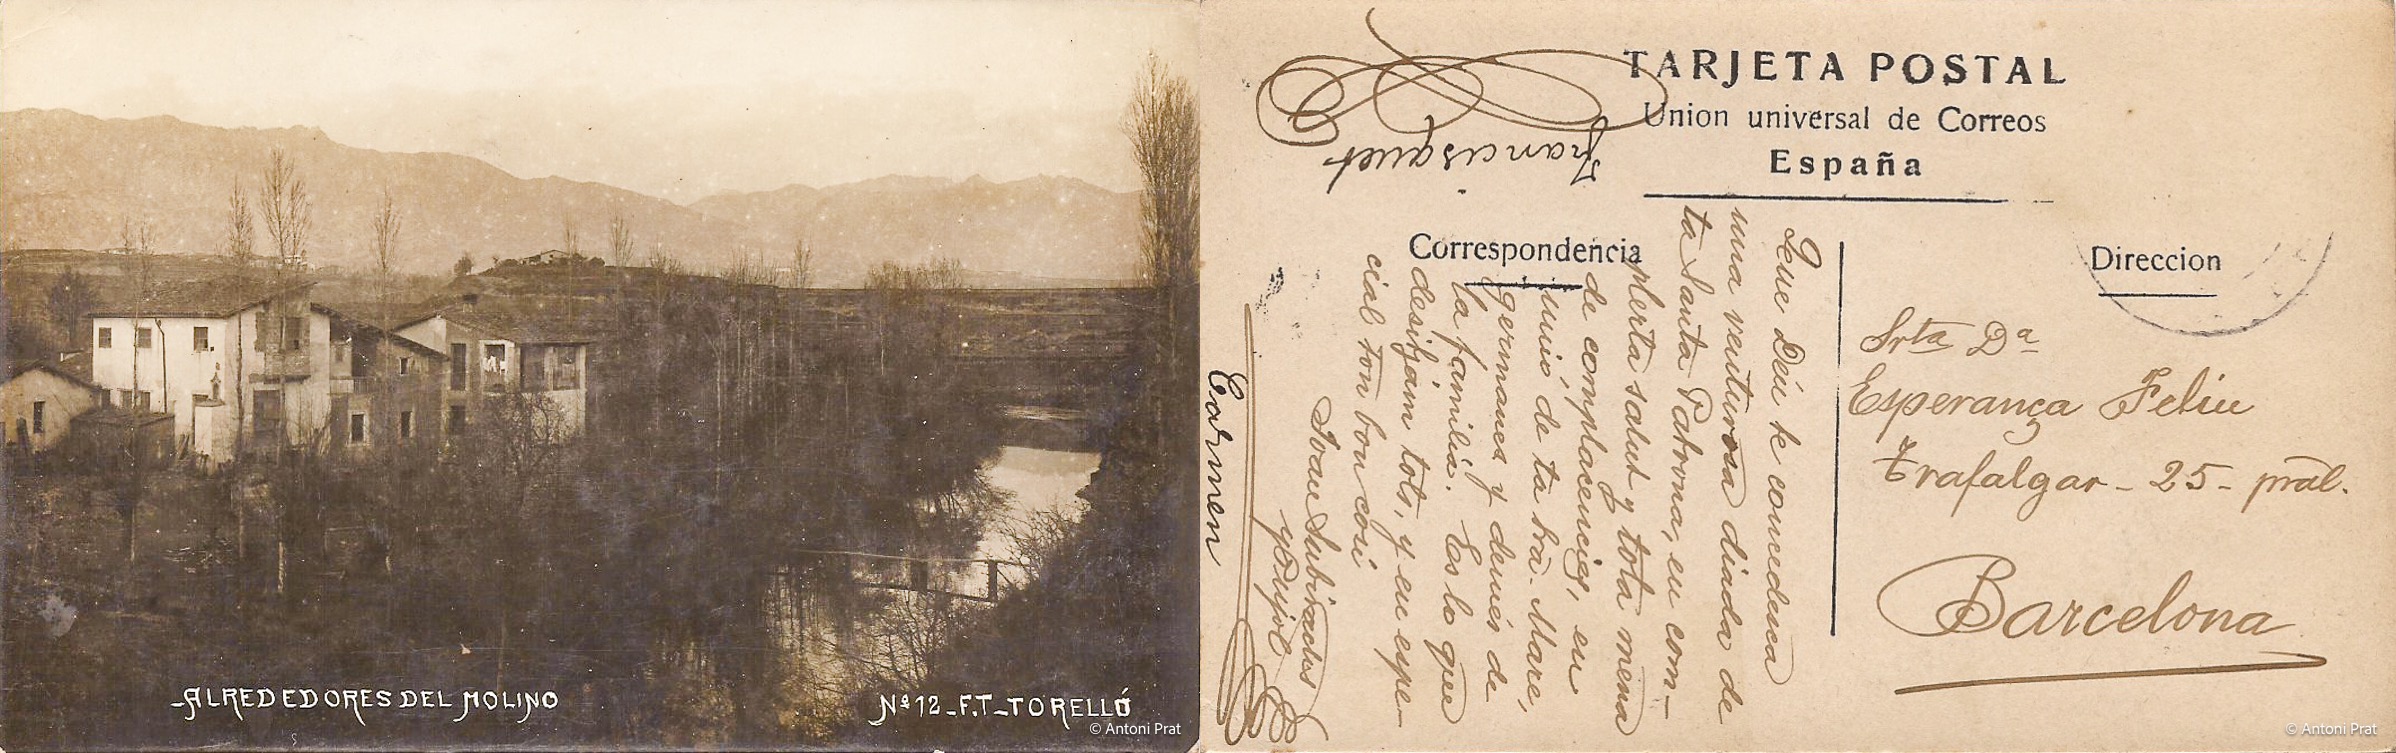 ALREDEDORES DEL MOLINO
Nº 12_F.T_TORELLÓ
© Antoni Prat
TARJETA POSTAL
Union universal de Correos
España
Correspondencia
Direccion
Srta Dª
Esperança Feliu
Trafalgar - 25 - pral.
Barcelona
Que Déu te concedesca
una venturosa diada de
ta Santa Patrona, en com-
plerta salut y tota mena
de complacencies, en
unió de ta bra. Mare,
germanes y demés de
la familia. Es lo que
desitjam tots, y en espe-
cial ton bon cosí
Joan Subirachs
y Pujol
Francisquet
Carmen
© Antoni Prat